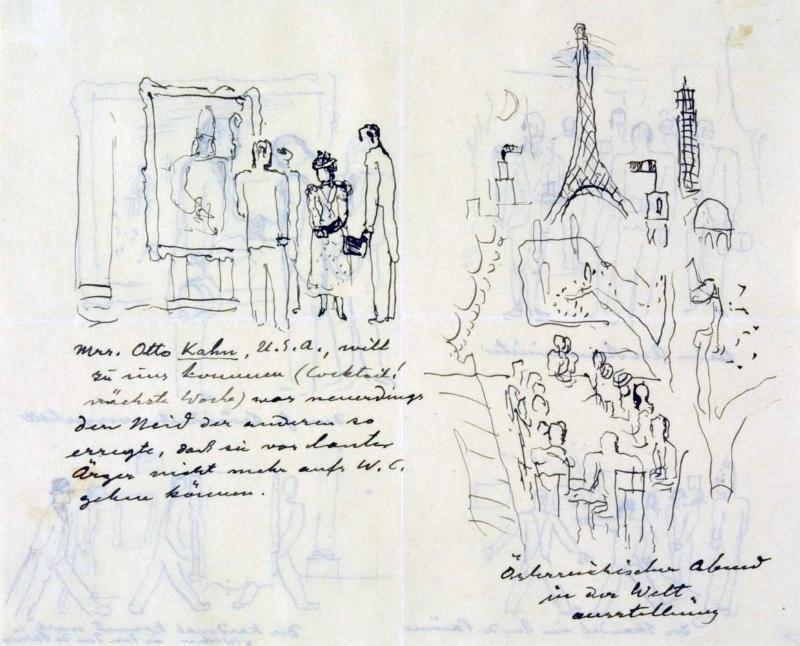 Mrs. Otto Kahn, U.S.A., will
zu uns kommen (Cocktail!
nächste Woche) was neuerdings
den Neid der anderen so
erregte, daß sie vor lauter
Ärger nicht mehr aufs W.C.
gehen können.
Österreichischer Abend
in der Welt
ausstellung